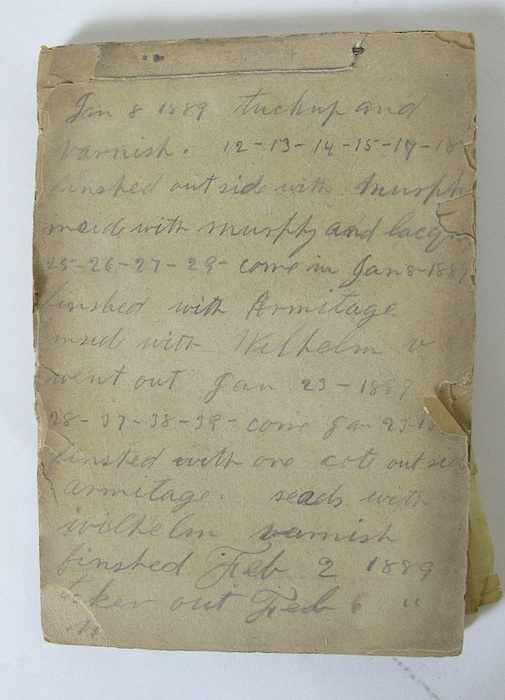 Jan 8 1889 tuchup and
varnish. 12-13-14-15-17-18
finshed out side with murph
inside with murphy and
25-26-27-29- come in Jan 8-1889
finshed with Armitage.
inside with Wilhelm v
went out Jan 23-1889
28-37-38-39- come Jan 23-18
finshed with one cote out side
armitage. seads with
wilhelm varnish
finshed Feb 2 1889
taken out Feb 6 "